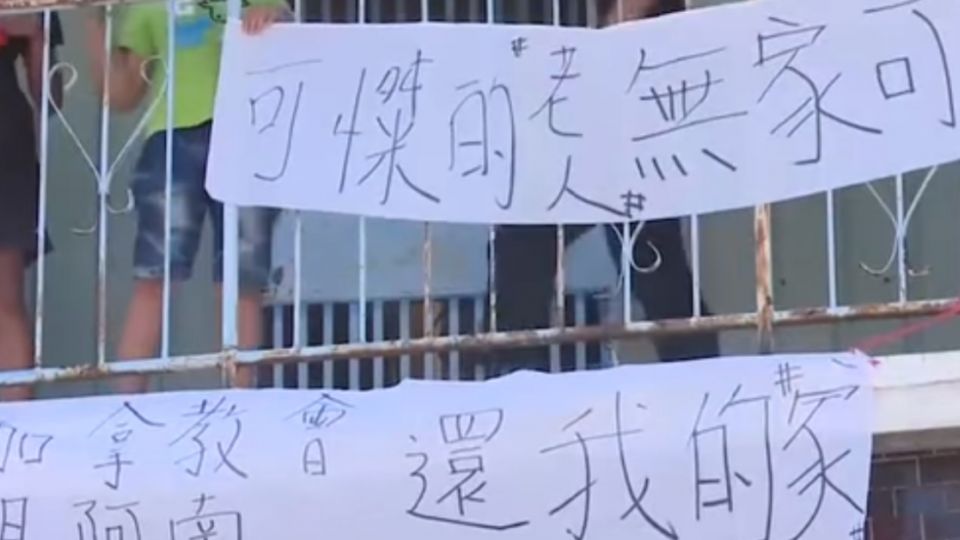 可憐的#老人#無家可
加拿教會 還我的#家#
阿南